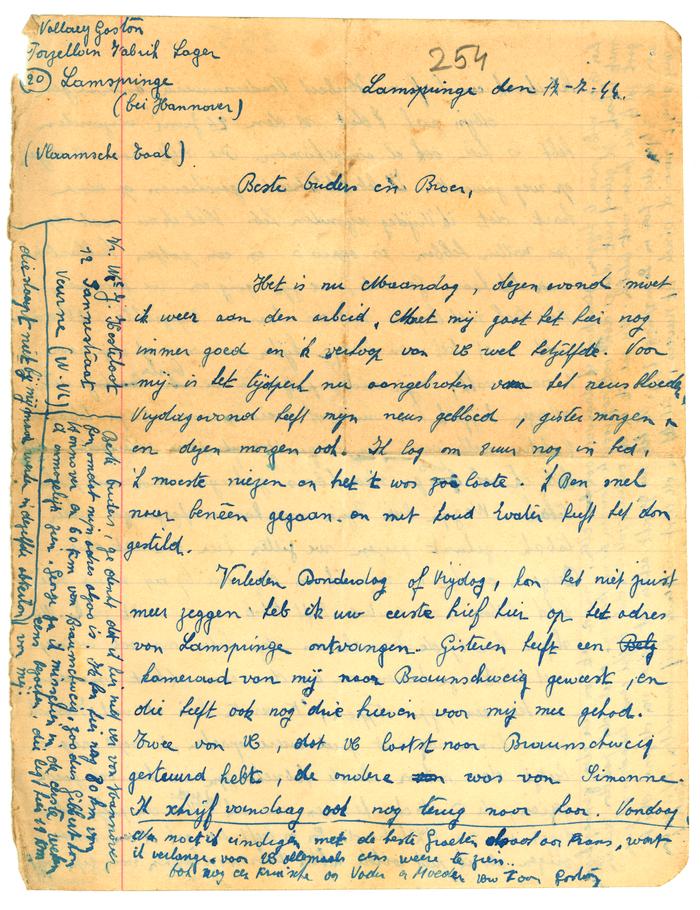 Vallaey Gaston
Porzellain Fabrik Lager
(20) Lamspringe
(bei Hannover)
(Vlaamsche Taal)
254
Lamspringe den 17-7-44.
Beste Ouders en Broer,
Het is nu Maandag, dezen avond moet
ik weer aan den arbeid. Met mij gaat het hier nog
immer goed en ik verhoop van U wel hetzelfde. Voor
mij is het tijdperk nu aangebroken van het neusbloeden,
Vrijdagavond heeft mijn neus gebloed, gister morgen
en dezen morgen ook. Ik lag om 8 uur nog in bed,
'k moeste niezen en het 't was zoo laate. 'k Ben snel
naar beneên gegaan. en met koud water heeft het dan
gestild.
Verleden Donderdag of Vrijdag, kan het niet juist
meer zeggen, heb ik uw eerste brief hier op het adres
van Lamspringe ontvangen. Gisteren heeft een Belg
kameraad van mij naar Braunschweig geweest, en
die heeft ook nog drie brieven voor mij mee gehad.
Twee van U, dat U laatst naar Braunschweig
gestuurd hebt, de andere was van Simonne.
Ik schrijf vandaag ook nog terug naar haar. Vandaag
moet ik eindigen met de beste Groeten ook aan Frans, want
ik verlange voor U allemaal eens weere te zien.
Ook nog een kruisje aan Vader en Moeder uw Zoon Gaston
12 Pannestraat
Veurne (W. Vl.)
Beste Ouders, ge denkt dat ik hier niet ver van Hannover
ben omdat mijn adres alzoo is. Ik ben hier nog 80 km van
Hannover en 60 km van Braunschweig, zoo dus Gilbert kan
ik onmogelijk zien. George ga ik misschien in de eerste weken
eens bezoeken, die ligt hier 19 km
van mij.
die slaapt niet bij mij maar werkt in dezelfde